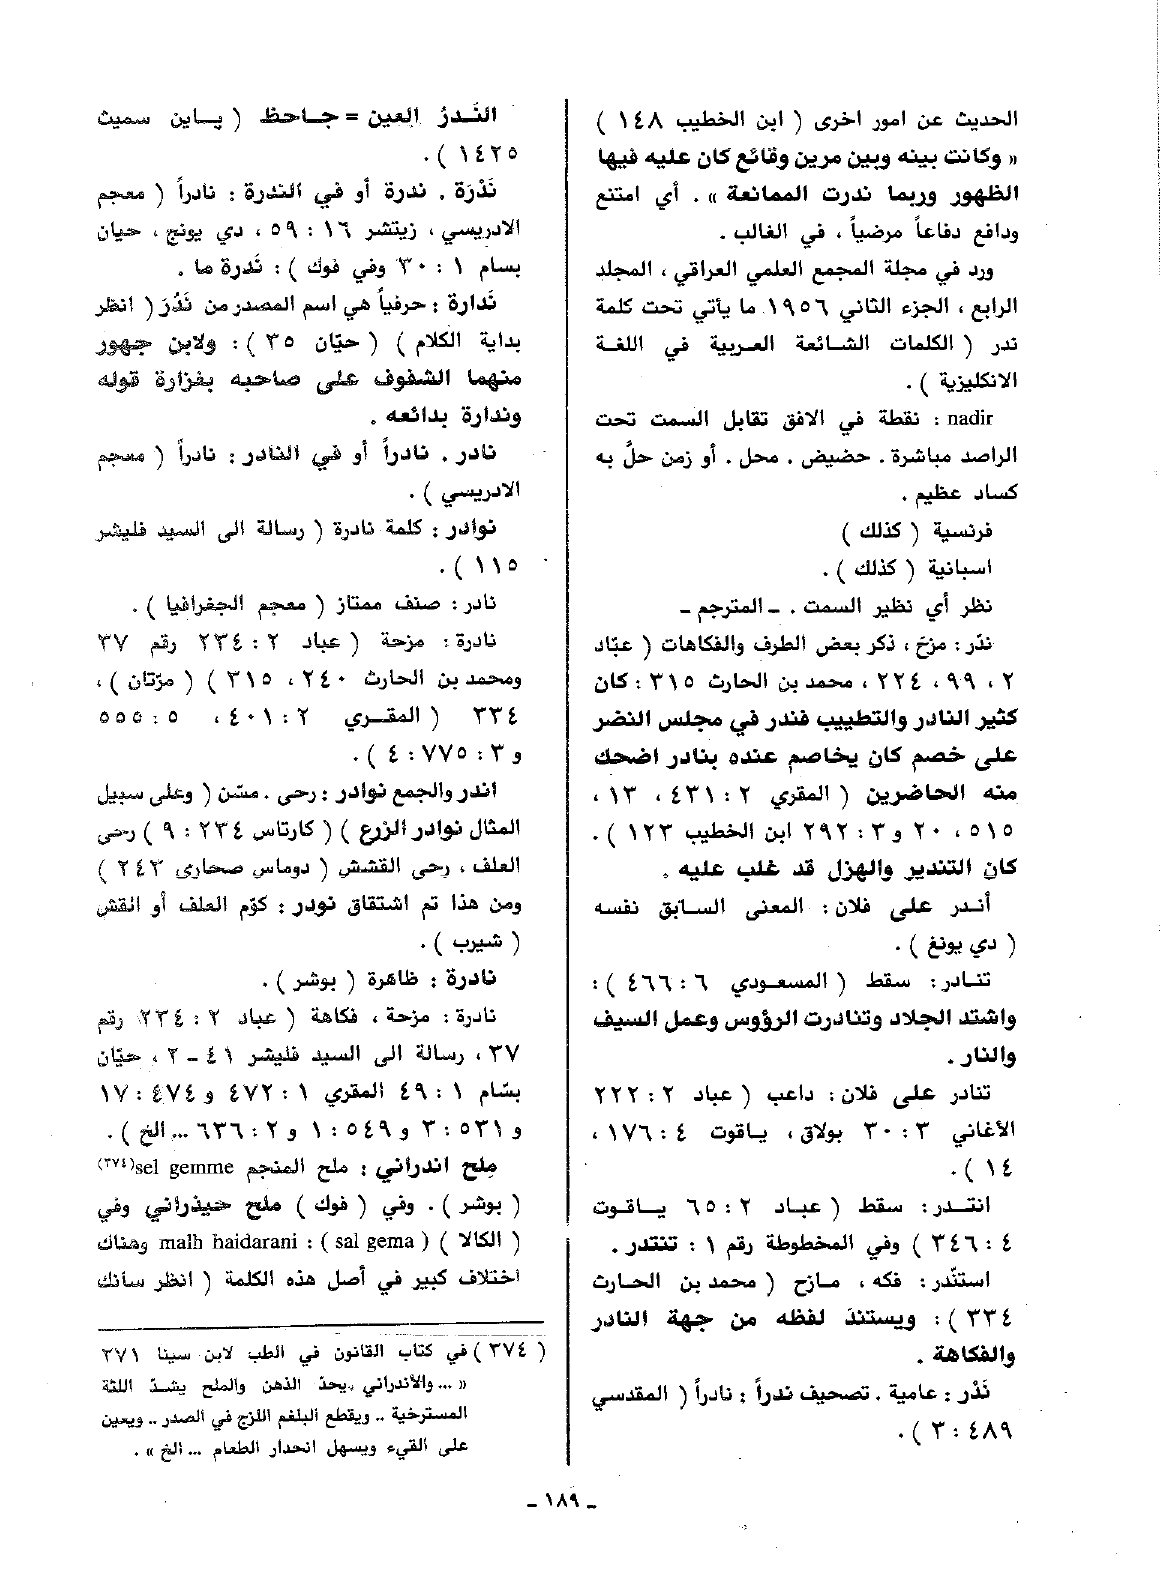 الحديث عن امور اخرى ( ابن الخطيب ١٤٨ )
« وكانت بينه وبين مرين وقائع كان عليه فيها
الظهور وربما ندرت الممانعة » . أي امتنع
ودافع دفاعاً مرضياً ، في الغالب .
ورد في مجلة المجمع العلمي العراقي ، المجلد
الرابع ، الجزء الثاني ١٩٥٦ ما يأتي تحت كلمة
ندر ( الكلمات الشائعة العربية في اللغة
الانكليزية ) .
nadir : نقطة في الافق تقابل السمت تحت
الراصد مباشرة . حضيض . محل . أو زمن حلَّ به
كساد عظيم .
فرنسية ( كذلك )
اسبانية ( كذلك ) .
نظر أي نظير السمت . ـ المترجم ـ
ندّر : مزح ، ذكر بعض الطرف والفكاهات ( عبّاد
٢ ، ٩٩ ، ٢٢٤ ، محمد بن الحارث ٣١٥ : كان
كثير النادر والتطييب فندر في مجلس النضر
على خصم كان يخاصم عنده بنادر اضحك
منه الحاضرين ( المقري ٢ : ٤٣١ ، ١٣ ،
٥١٥ ، ٢٠ و ٣ : ٢٩٢ ابن الخطيب ١٢٣ ) .
كان التندير والهزل قد غلب عليه .
أندر على فلان : المعنى السابق نفسه
( دي يونغ ) .
تنادر : سقط ( المسعودي ٦ : ٤٦٦ ) :
واشتد الجلاد وتنادرت الرؤوس وعمل السيف
والنار .
تنادر على فلان : داعب ( عباد ٢ : ٢٢٢
الأغاني ٣ : ٣٠ بولاق ، ياقوت ٤ : ١٧٦ ،
١٤ ) .
انتدر : سقط ( عباد ٢ : ٦٥ ياقوت
٤ : ٣٤٦ ) وفي المخطوطة رقم ١ : تنتدر .
استندر : فكه ، مازح ( محمد بن الحارث
٣٣٤ ) : ويستند لفظه من جهة النادر
والفكاهة .
نَدْر : عامية . تصحيف ندراً : نادراً ( المقدسي
٤٨٩ : ٣ ) .
النَّدرُ العين = جاحظ ( ياين سميث
١٤٢٥ ) .
نَدْرَة . ندرة أو في الندرة : نادراً ( معجم
الادريسي ، زيتشر ١٦ : ٥٩ ، دي يونج ، حيان
بسام ١ : ٣٠ وفي فوك ) : نَدرة ما .
نَدارة : حرفياً هي اسم المصدر من نَدُرَ ( انظر
بداية الكلام ) ( حيّان ٣٥ ) : ولابن جهور
منهما الشفوف على صاحبه بغزارة قوله
وندارة بدائعه .
نادر . نادراً أو في النادر : نادراً ( معجم
الادريسي ) .
نوادر : كلمة نادرة ( رسالة الى السيد فليشر
١١٥ ) .
نادر : صنف ممتاز ( معجم الجغرافيا ) .
نادرة : مزحة ( عباد ٢ : ٢٣٤ رقم ٣٧
ومحمد بن الحارث ٢٤٠ ، ٣١٥ ) ( مرّتان ) ،
٣٣٤ ( المقري ٢ : ٤٠١ ، ٥ : ٥٥٥
و ٣ : ٧٧٥ : ٤ ) .
اندر والجمع نوادر : رحى . مسّن ( وعلى سبيل
المثال نوادر الزرع ) ( كارتاس ٢٣٤ : ٩ ) رحى
العلف ، رحى القشش ( دوماس صحارى ٢٤٣ )
ومن هذا تم اشتقاق نودر : كوّم العلف أو القش
( شيرب ) .
نادرة : ظاهرة ( بوشر ) .
نادرة : مزحة ، فكاهة ( عباد ٢ : ٢٣٤ رقم
٣٧ ، رسالة الى السيد فليشر ٤١ ـ ٢ ، حيّان
بسّام ١ : ٤٩ المقري ١ : ٤٧٢ و ٤٧٤ : ١٧
و ٥٣١ : ٣ و ٥٤٩ : ١ و ٢ : ٦٣٦ ... الخ ) .
مِلح اندراني : ملح المنجم sel gemme(٣٧٤)
( بوشر ) . وفي ( فوك ) ملح حيذراني وفي
( الكالا ) ( sal gema ) : malh haidarani وهناك
اختلاف كبير في أصل هذه الكلمة ( انظر سانك
( ٣٧٤ ) في كتاب القانون في الطب لابن سينا ٢٧١
« ... والأندراني .يحدّ الذهن والملح يشدّ اللثة
المسترخية .. ويقطع البلغم اللزج في الصدر .. ويعين
على القيء ويسهل انحدار الطعام ... الخ » .
ـ ١٨٩ ـ